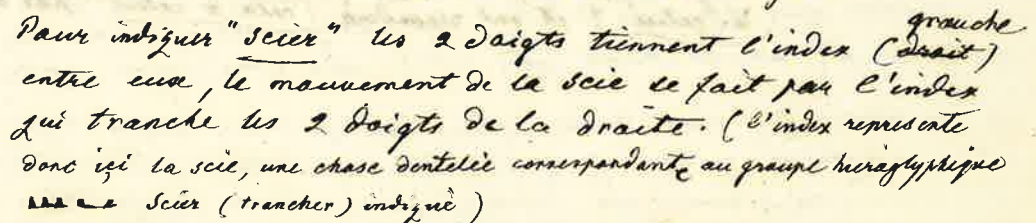 grauche
Pour indiquer "scier" les 2 doigts tiennent l'index (droit)
entre eux, le mouvement de la scie se fait par l'index
qui tranche les 2 doigts de la droite. (l'index represente
donc içi la scie, une chose dentelée correspondante au groupe hieroglyphique
scier (trancher) indiqué)